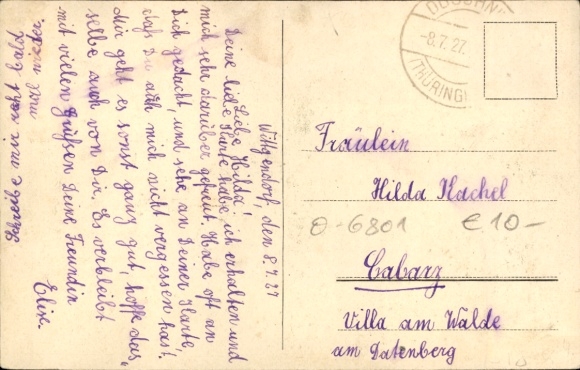 Wittgendorf, den 8.7.27
Liebe Hilda!
Deine liebe Karte habe ich erhalten und
mich sehr darüber gefreut. Habe oft an
Dich gedacht, und sehe an Deiner Karte,
daß Du auch mich nicht vergessen hast.
Mir geht es sonst ganz gut, hoffe das-
selbe auch von Dir. Es verbleibt
mit vielen Grüßen Deine Freundin
Elise.
Schreibe mir recht bald
mal wieder.
-8.7.27.
(THÜRING
Fräulein
Hilda Kachel
O-6801 € 10-
Cabarz
Villa am Walde
am Datenberg